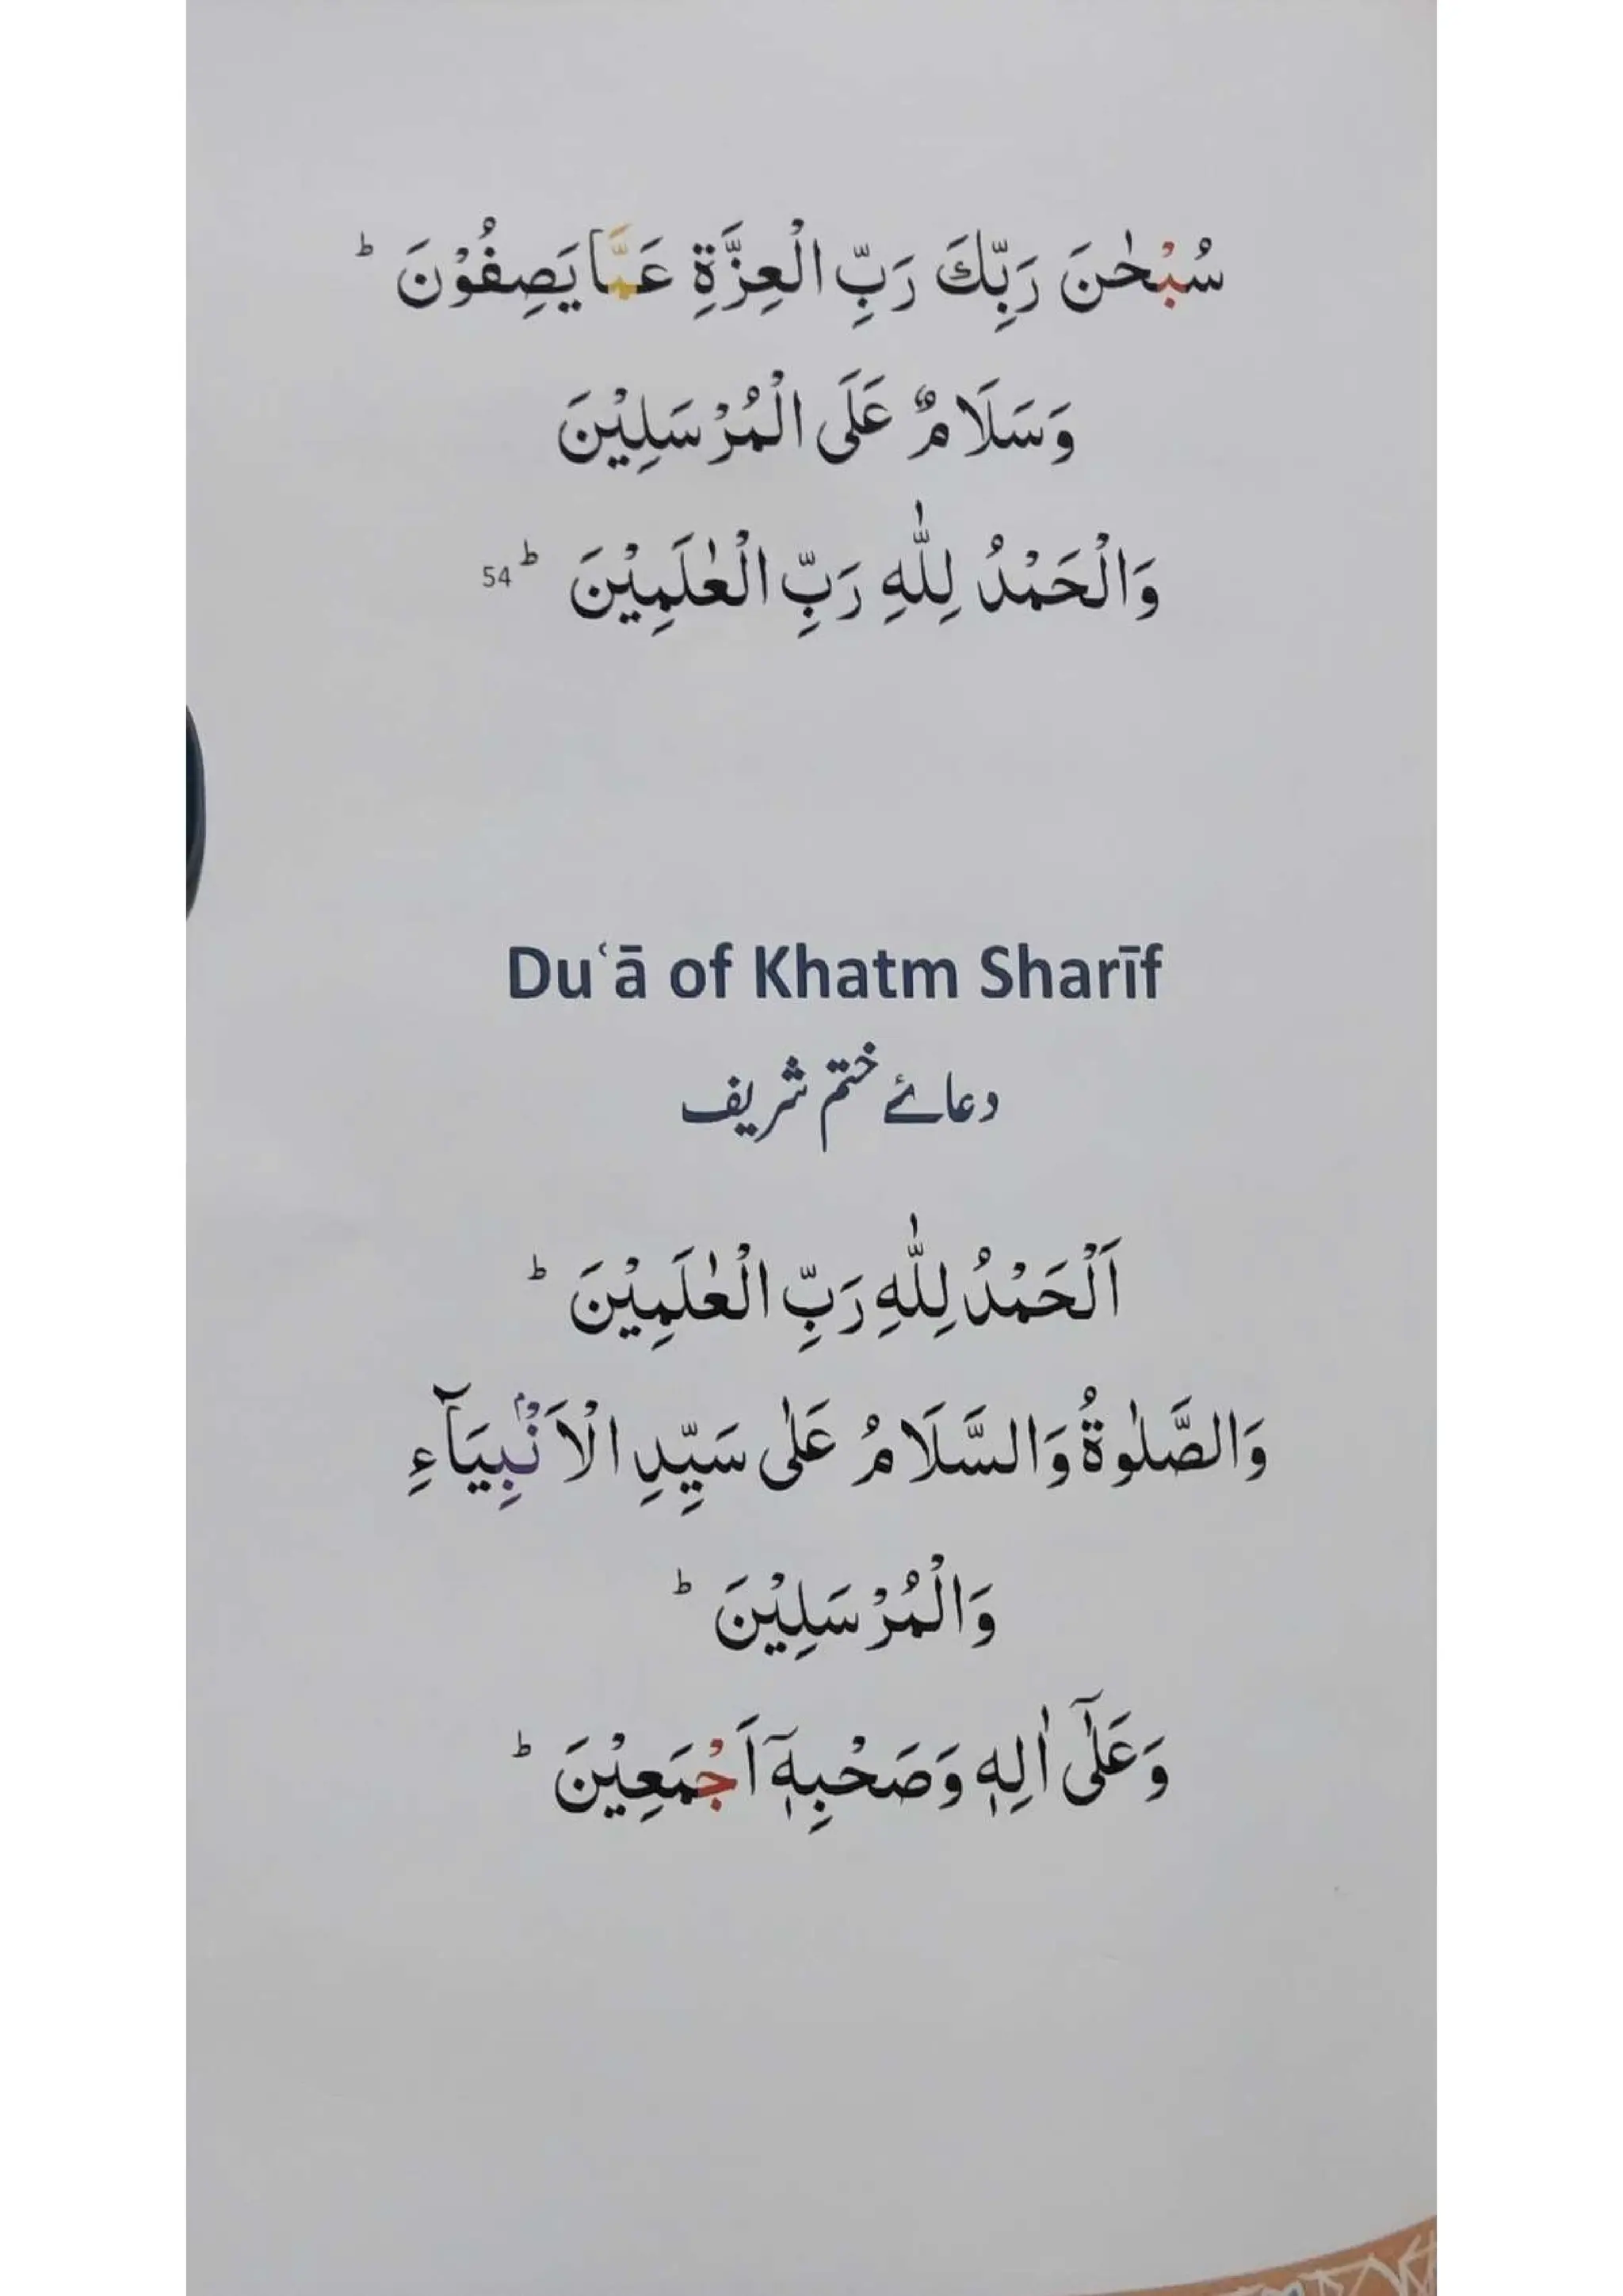 سُبْحٰنَ رَبِّكَ رَبِّ الْعِزَّةِ عَمَّا يَصِفُوْنَ ؕ
وَسَلَامٌ عَلَى الْمُرْسَلِيْنَ
وَالْحَمْدُ لِلّٰهِ رَبِّ الْعٰلَمِيْنَ ؕ 54
Duʿā of Khatm Sharīf
دعائے ختم شریف
اَلْحَمْدُ لِلّٰهِ رَبِّ الْعٰلَمِيْنَ ؕ
وَالصَّلٰوةُ وَالسَّلَامُ عَلٰى سَيِّدِ الْاَنْۢبِيَآءِ
وَالْمُرْسَلِيْنَ ؕ
وَعَلٰٓى اٰلِهٖ وَصَحْبِهٖٓ اَجْمَعِيْنَ ؕ